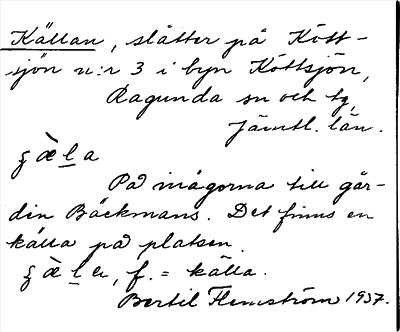 Källan, slåtter på Kött-
sjön n:r 3 i byn Köttsjön,
Ragunda sn och tg,
Jämtl. län.
På inägorna till går-
din Bäckmans. Det finns en
källa på platsen.
f. = källa.
Bertil Flemström 1937.